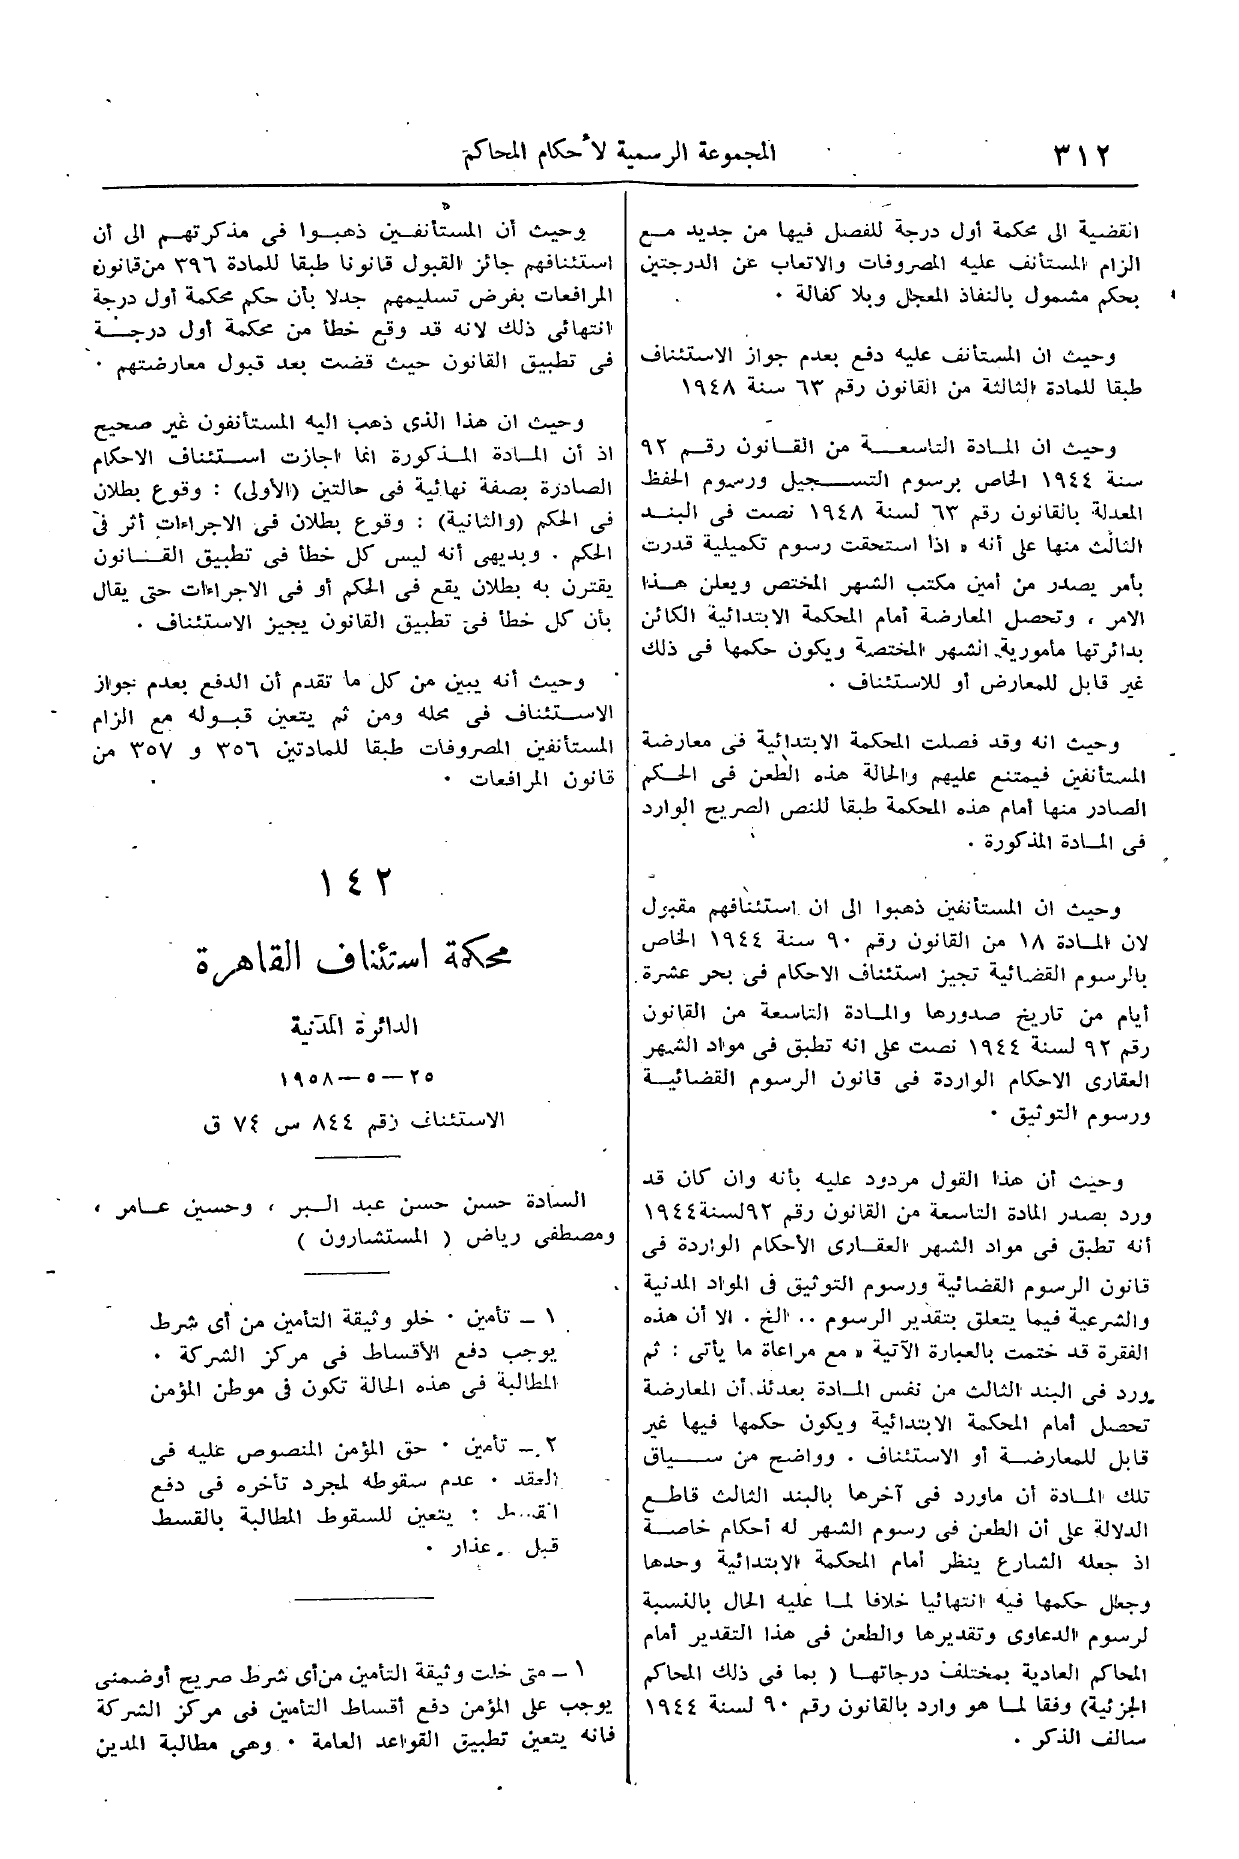 ٣١٢
المجموعة الرسمية لأحكام المحاكم
القضية الى محكمة أول درجة للفصل فيها من جديد مع
الزام المستأنف عليه المصروفات والاتعاب عن الدرجتين
بحكم مشمول بالنفاذ المعجل وبلا كفالة .
وحيث ان المستأنف عليه دفع بعدم جواز الاستئناف
طبقا للمادة الثالثة من القانون رقم ٦٣ سنة ١٩٤٨
وحيث ان المادة التاسعة من القانون رقم ٩٢
سنة ١٩٤٤ الخاص برسوم التسجيل ورسوم الحفظ
المعدلة بالقانون رقم ٦٣ لسنة ١٩٤٨ نصت فى البند
الثالث منها على أنه « اذا استحقت رسوم تكميلية قدرت
بأمر يصدر من أمين مكتب الشهر المختص ويعلن هذا
الامر ، وتحصل المعارضة أمام المحكمة الابتدائية الكائن
بدائرتها مأمورية الشهر المختصة ويكون حكمها فى ذلك
غير قابل للمعارض أو للاستئناف .
وحيث انه وقد فصلت المحكمة الابتدائية فى معارضة
المستأنفين فيمتنع عليهم والحالة هذه الطعن فى الحكم
الصادر منها أمام هذه المحكمة طبقا للنص الصريح الوارد
فى المادة المذكورة .
وحيث ان المستأنفين ذهبوا الى ان استئنافهم مقبول
لان المادة ١٨ من القانون رقم ٩٠ سنة ١٩٤٤ الخاص
بالرسوم القضائية تجيز استئناف الاحكام فى بحر عشرة
أيام من تاريخ صدورها والمادة التاسعة من القانون
رقم ٩٢ لسنة ١٩٤٤ نصت على انه تطبق فى مواد الشهر
العقارى الاحكام الواردة فى قانون الرسوم القضائية
ورسوم التوثيق .
وحيث أن هذا القول مردود عليه بأنه وان كان قد
ورد بصدر المادة التاسعة من القانون رقم ٩٢ لسنة ١٩٤٤
أنه تطبق فى مواد الشهر العقارى الأحكام الواردة فى
قانون الرسوم القضائية ورسوم التوثيق فى المواد المدنية
والشرعية فيما يتعلق بتقدير الرسوم .. الخ . الا أن هذه
الفقرة قد ختمت بالعبارة الآتية « مع مراعاة ما يأتى : ثم
ورد فى البند الثالث من نفس المادة بعدئذ أن المعارضة
تحصل أمام المحكمة الابتدائية ويكون حكمها فيها غير
قابل للمعارضة أو الاستئناف . وواضح من سياق
تلك المادة أن ماورد فى آخرها بالبند الثالث قاطع
الدلالة على أن الطعن فى رسوم الشهر له أحكام خاصة
اذ جعله الشارع ينظر أمام المحكمة الابتدائية وحدها
وجعل حكمها فيه انتهائيا خلافا لما عليه الحال بالنسبة
لرسوم الدعاوى وتقديرها والطعن فى هذا التقدير أمام
المحاكم العادية بمختلف درجاتها ( بما فى ذلك المحاكم
الجزئية) وفقا لما هو وارد بالقانون رقم ٩٠ لسنة ١٩٤٤
سالف الذكر .
وحيث أن المستأنفين ذهبوا فى مذكرتهم الى أن
استئنافهم جائز القبول قانونا طبقا للمادة ٣٩٦ من قانون
المرافعات بفرض تسليمهم جدلا بأن حكم محكمة أول درجة
انتهائى ذلك لانه قد وقع خطأ من محكمة أول درجة
فى تطبيق القانون حيث قضت بعد قبول معارضتهم .
وحيث ان هذا الذى ذهب اليه المستأنفون غير صحيح
اذ أن المادة المذكورة انما اجازت استئناف الاحكام
الصادرة بصفة نهائية فى حالتين (الأولى) : وقوع بطلان
فى الحكم (والثانية) : وقوع بطلان فى الاجراءات أثر فى
الحكم . وبديهى أنه ليس كل خطأ فى تطبيق القانون
يقترن به بطلان يقع فى الحكم أو فى الاجراءات حتى يقال
بأن كل خطأ فى تطبيق القانون يجيز الاستئناف .
وحيث أنه يبين من كل ما تقدم أن الدفع بعدم جواز
الاستئناف فى محله ومن ثم يتعين قبوله مع الزام
المستأنفين المصروفات طبقا للمادتين ٣٥٦ و ٣٥٧ من
قانون المرافعات .
١٤٢
محكمة استئناف القاهرة
الدائرة المدنية
٢٥ – ٥ – ١٩٥٨
الاستئناف رقم ٨٤٤ س ٧٤ ق
السادة حسن حسن عبد البر ، وحسين عامر ،
ومصطفى رياض ( المستشارون )
١ – تأمين . خلو وثيقة التأمين من أى شرط
يوجب دفع الأقساط فى مركز الشركة .
المطالبة فى هذه الحالة تكون فى موطن المؤمن
٢ – تأمين . حق المؤمن المنصوص عليه فى
العقد . عدم سقوطه لمجرد تأخره فى دفع
: يتعين للسقوط المطالبة بالقسط
قبل
١ – متى خلت وثيقة التأمين من أى شرط صريح أو ضمنى
يوجب على المؤمن دفع أقساط التأمين فى مركز الشركة
فانه يتعين تطبيق القواعد العامة . وهى مطالبة المدين